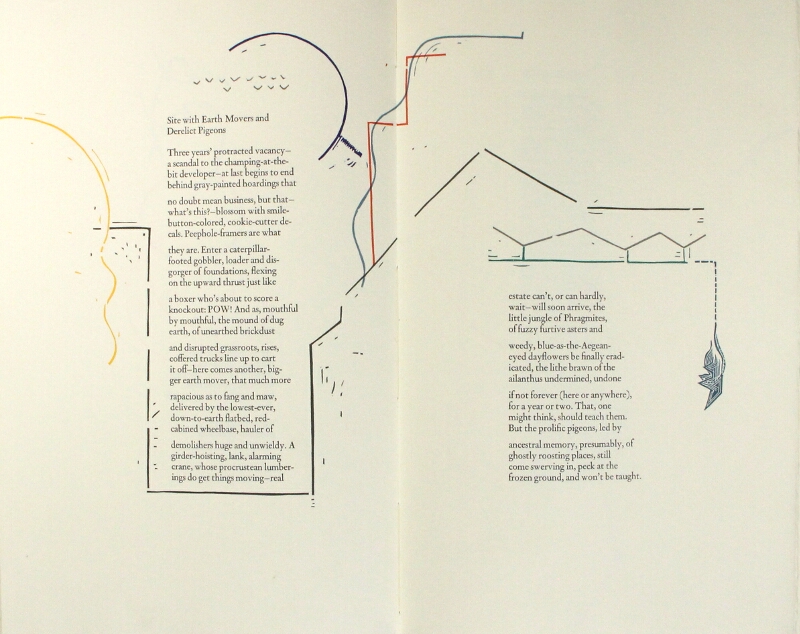 Site with Earth Movers and
Derelict Pigeons
Three years' protracted vacancy—
a scandal to the champing-at-the-
bit developer—at last begins to end
behind gray-painted hoardings that
no doubt mean business, but that—
what's this?—blossom with smile-
button-colored, cookie-cutter de-
cals. Peephole-framers are what
they are. Enter a caterpillar-
footed gobbler, loader and dis-
gorger of foundations, flexing
on the upward thrust just like
a boxer who's about to score a
knockout: POW! And as, mouthful
by mouthful, the mound of dug
earth, of unearthed brickdust
and disrupted grassroots, rises,
coffered trucks line up to cart
it off—here comes another, big-
ger earth mover, that much more
rapacious as to fang and maw,
delivered by the lowest-ever,
down-to-earth flatbed, red-
cabined wheelbase, hauler of
demolishers huge and unwieldy. A
girder-hoisting, lank, alarming
crane, whose procrustean lumber-
ings do get things moving—real
estate can't, or can hardly,
wait—will soon arrive, the
little jungle of Phragmites,
of fuzzy furtive asters and
weedy, blue-as-the-Aegean-
eyed dayflowers be finally erad-
icated, the lithe brawn of the
ailanthus undermined, undone
if not forever (here or anywhere),
for a year or two. That, one
might think, should teach them.
But the prolific pigeons, led by
ancestral memory, presumably, of
ghostly roosting places, still
come swerving in, peck at the
frozen ground, and won't be taught.